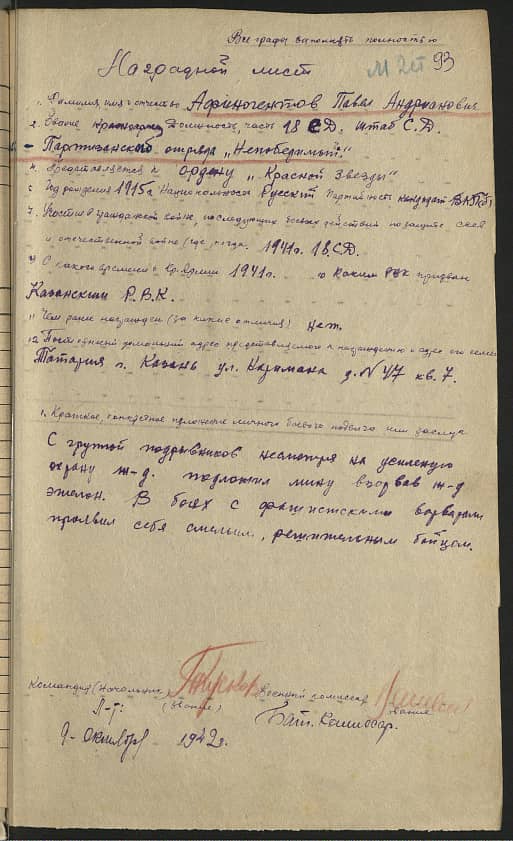 Все графы выполнять полностью
Наградной лист
93
1. Фамилия имя отчество Афиногентов Павел Андрианович
2. Звание красноармеец Должность, часть 18 СД. штаб С.Д.
Партизанского отряда „Непобедимый."
4. Представляется к ордену „Красной Звезды"
5. Год рождения 1915г. Национальность Русский Партийность кандидат ВКП(б)
7. Участие в гражданской войне, последующих боевых действий по защите СССР
и отечественной войне (где, когда. 1941г. 18.С.Д.
С какого времени в Кр. Армии 1941г. 10 Каким РВК призван
Казанский Р.В.К.
11 Чем ранее награжден (за какие отличия) нет.
12. Постоянный домашний адрес представляемого к награждению и адрес его семьи
Татария г. Казань ул. Наримана д. № 47 кв. 7.
1. Краткое, конкретное изложение личного боевого подвига или заслуг
С группой подрывников несмотря на усиленую
охрану ж-д. подложил мину взорвав ж-д
эшелон. В боях с фашистскими варварами
проявил себя смелым, решительным бойцом.
Командир (Начальник) Военный комиссар
(звание) звание
Бат. Комиссар.
9 - Октября 1942г.